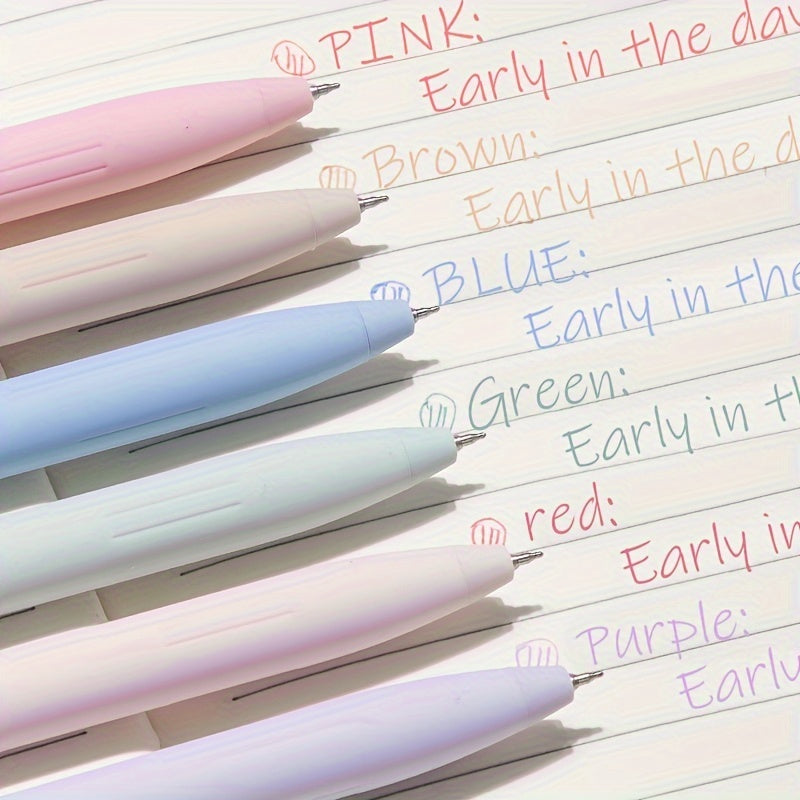 PINK:
Early in the day
Brown:
Early in the d
BLUE:
Early in the
Green:
Early in th
red:
Early in
Purple:
Early